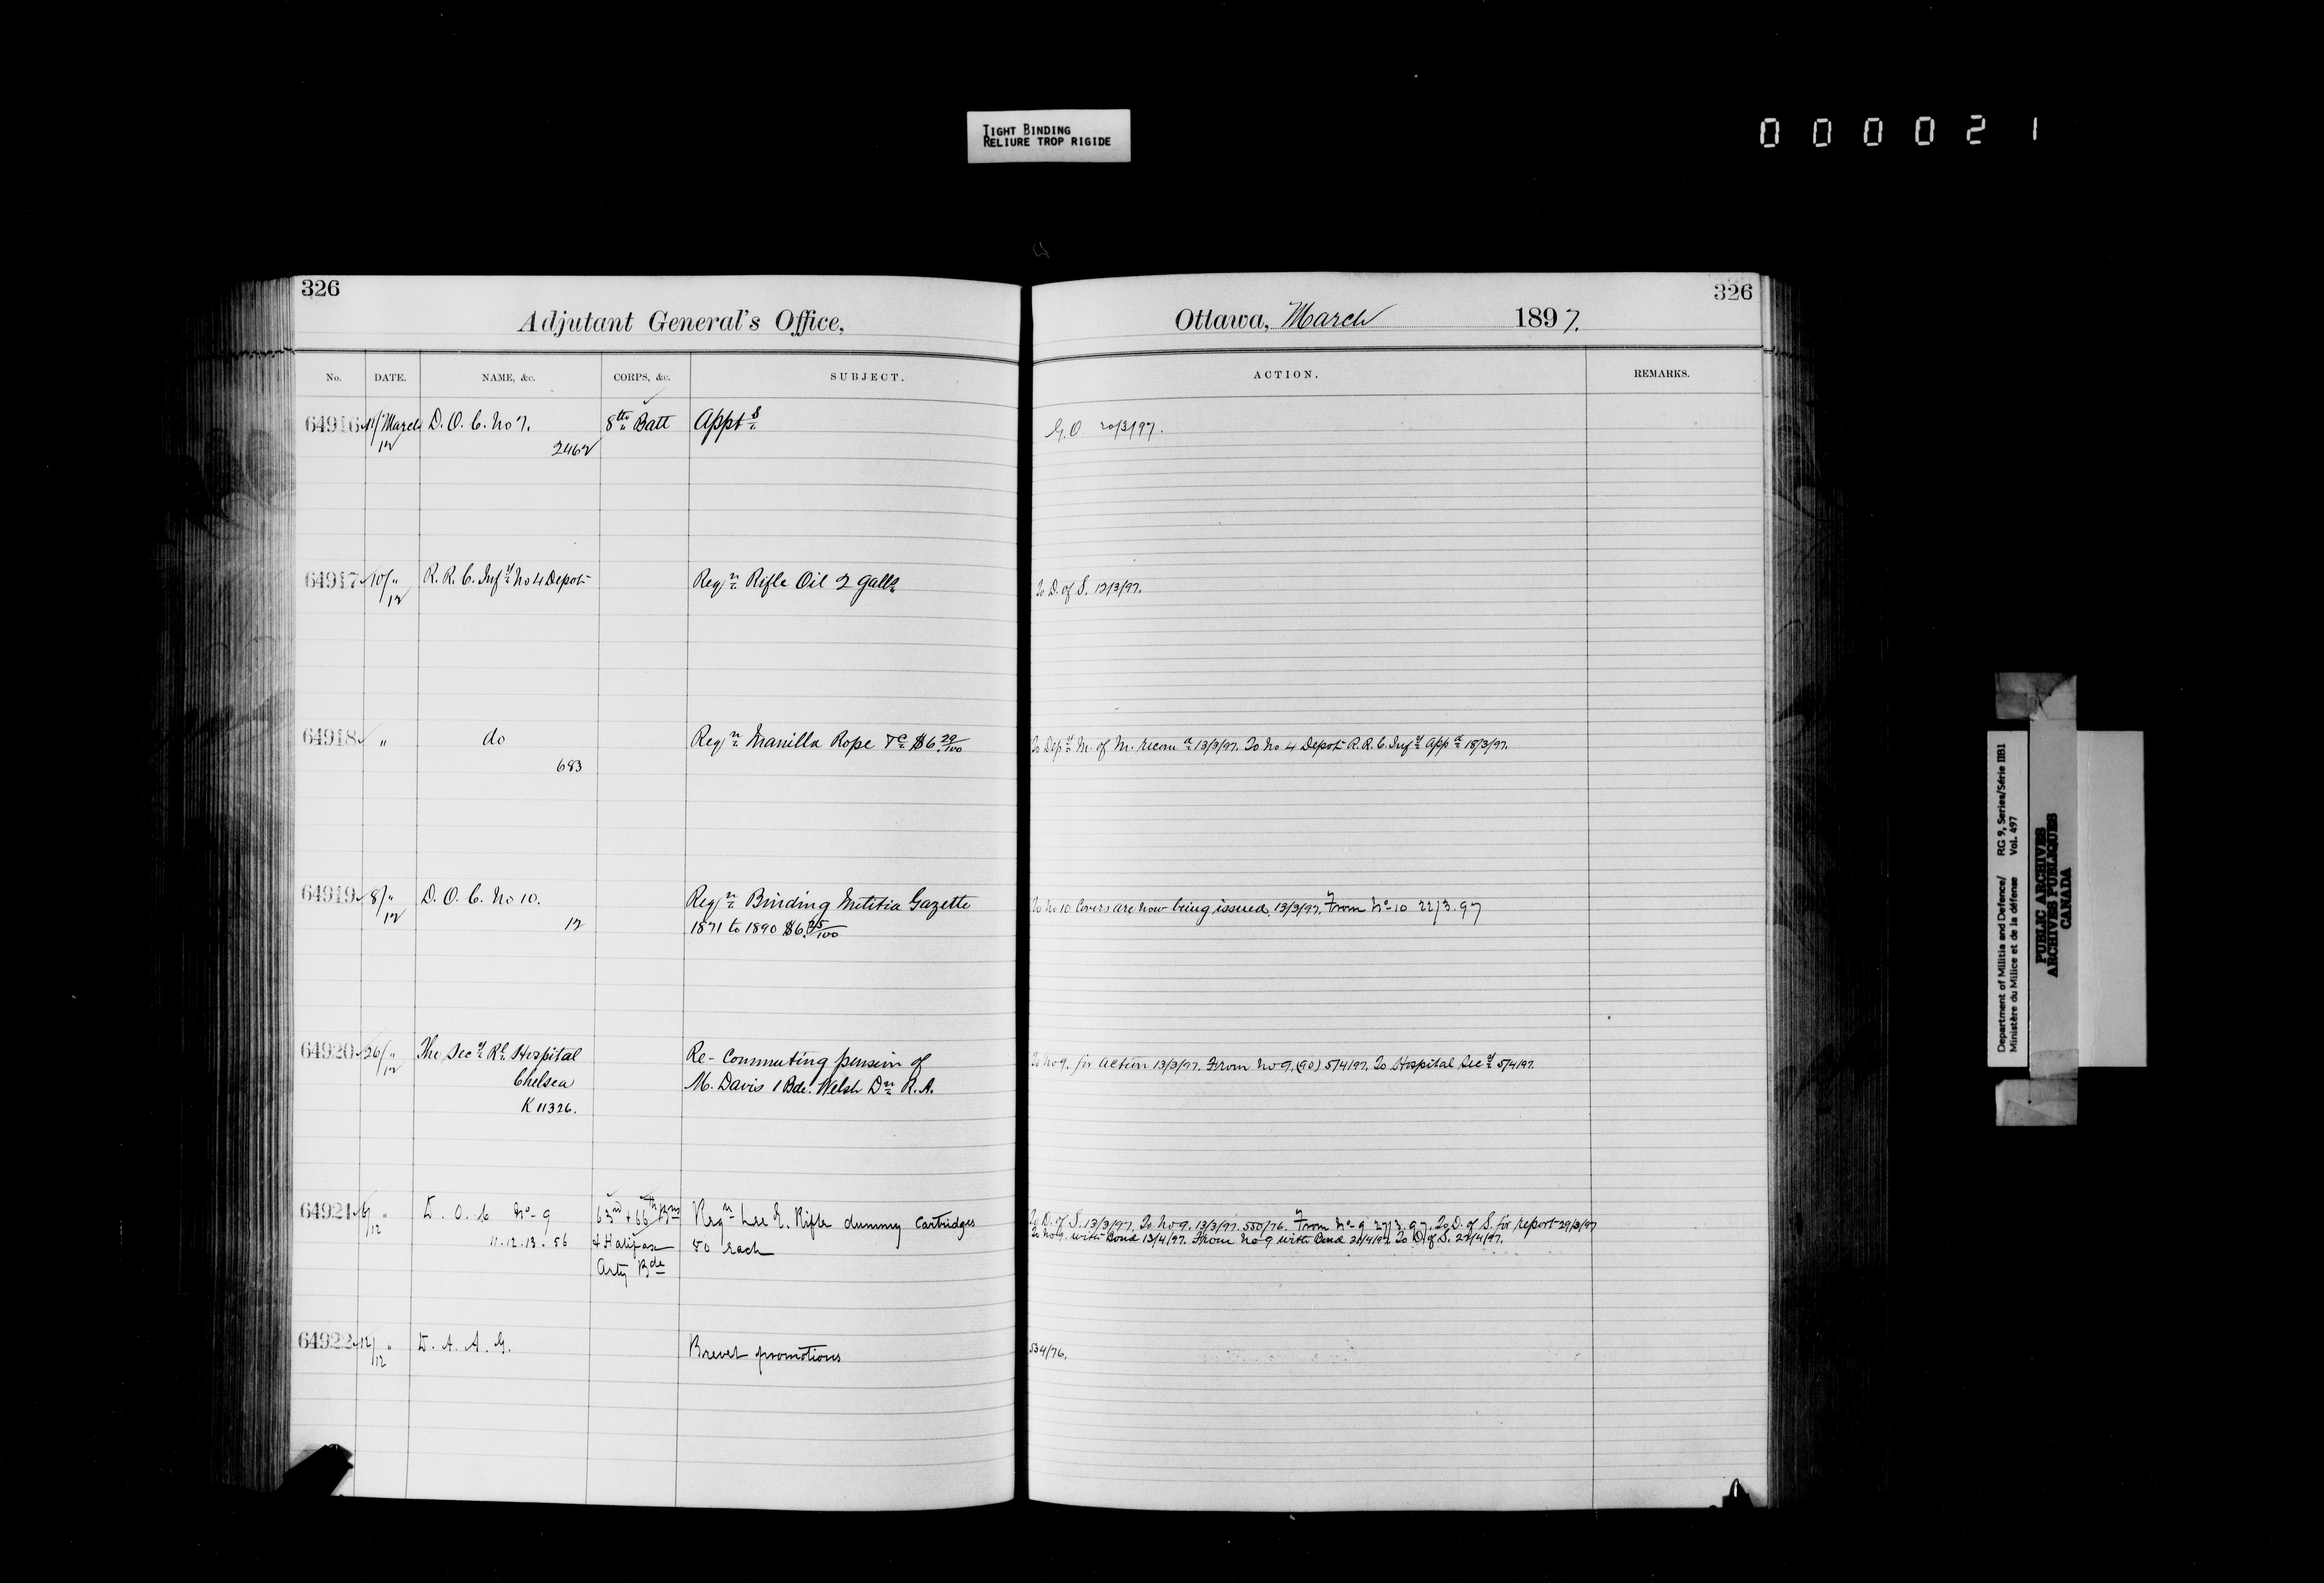 TIGHT BINDING
RELIURE TROP RIGIDE
000021
326
Adjutant General's Office,
No. DATE. NAME, &c. CORPS, &c. SUBJECT.
64916 11/March D. O. C. No 7. 8th Batt Appts
12
2462
64917 10/" R. R. C. Infy No 4 Depot Reqn Rifle Oil 2 galls
12
64918 " do Reqn Manilla Rope &c $6.20/100
683
64919 8/" D. O. C. No 10. Reqn Binding Militia Gazette
12 12 1871 to 1890 $6.25/100
64920 26/" The Secy Rl Hospital Re- Commuting pension of
12 Chelsea M. Davis 1 Bde. Welsh Dn R.A.
K 11326.
64921 " D. O. C No 9 63rd + 66th Bns Reqn Lee E. Rifle dummy Cartridges
12 11.12.13.56 + Halifax 50 each
Arty Bde
64922 12/" D. A. A. G. Brevet promotions
12
326
Ottawa, March 1897.
ACTION. REMARKS.
G.O 20/3/97.
To D. of S. 12/3/97.
To Depy M. of M. recomd 13/3/97. To No 4 Depot R.R.C. Infy Appd 18/3/97.
To No 10 Covers are now being issued. 13/3/97. From No 10 22/3.97
To No 9. for action 13/3/97. From No 9. (90) 5/4/97. To Hospital Secy 5/4/97.
To D. of S. 13/3/97. To No 9. 13/3/97. 550/76. From No 9 27/3.97. To D. of S. for report 29/3/97
To No 9. with Bond 13/4/97. From No 9 with Bond 21/4/97. To D. of S. 22/4/97.
534/76.
Department of Militia and Defence/ RG 9, Series/Série IIB1
Ministère du Milice et de la défense Vol. 497
PUBLIC ARCHIVES
ARCHIVES PUBLIQUES
CANADA